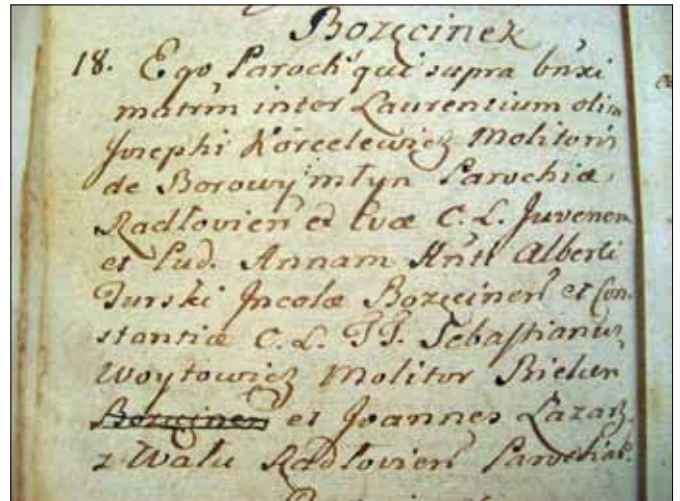 Bozęcinek
18. Ego Paroch' qui supra bnxi
matrim inter Laurentium olim
Josephi Korcelewicz Molitoris
de Borowy młyn Parochiæ
Radłovien' et Evæ C. L. Juvenem
et Pud. Annam Alberti
Turski Incolæ Bozęcinen' et Con-
stantiæ C. L. TT. Sebastianus
Woytowicz Molitor Bielcen
Bozęcinen' et Joannes Łazarz
z Wału Radłovien' Parochiæ